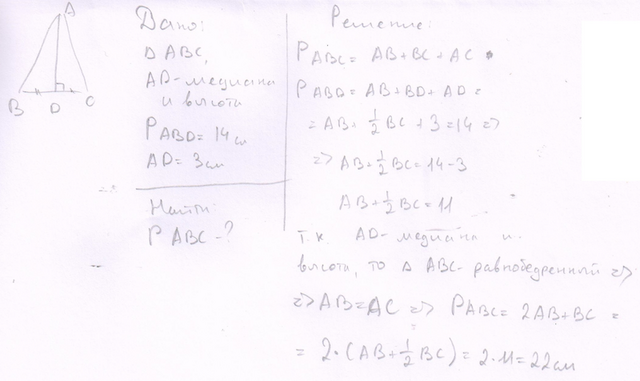 A
B D C
Дано:
Δ ABC,
AD - медиана
и высота
P ABD = 14 см
AD = 3 см
Найти:
P ABC - ?
Решение:
P ABC = AB + BC + AC
P ABD = AB + BD + AD =
= AB + 1/2 BC + 3 = 14 =>
=> AB + 1/2 BC = 14 - 3
AB + 1/2 BC = 11
Т.к. AD - медиана и
высота, то Δ ABC - равнобедренный =>
=> AB = AC => P ABC = 2AB + BC =
= 2·(AB + 1/2 BC) = 2·11 = 22 см